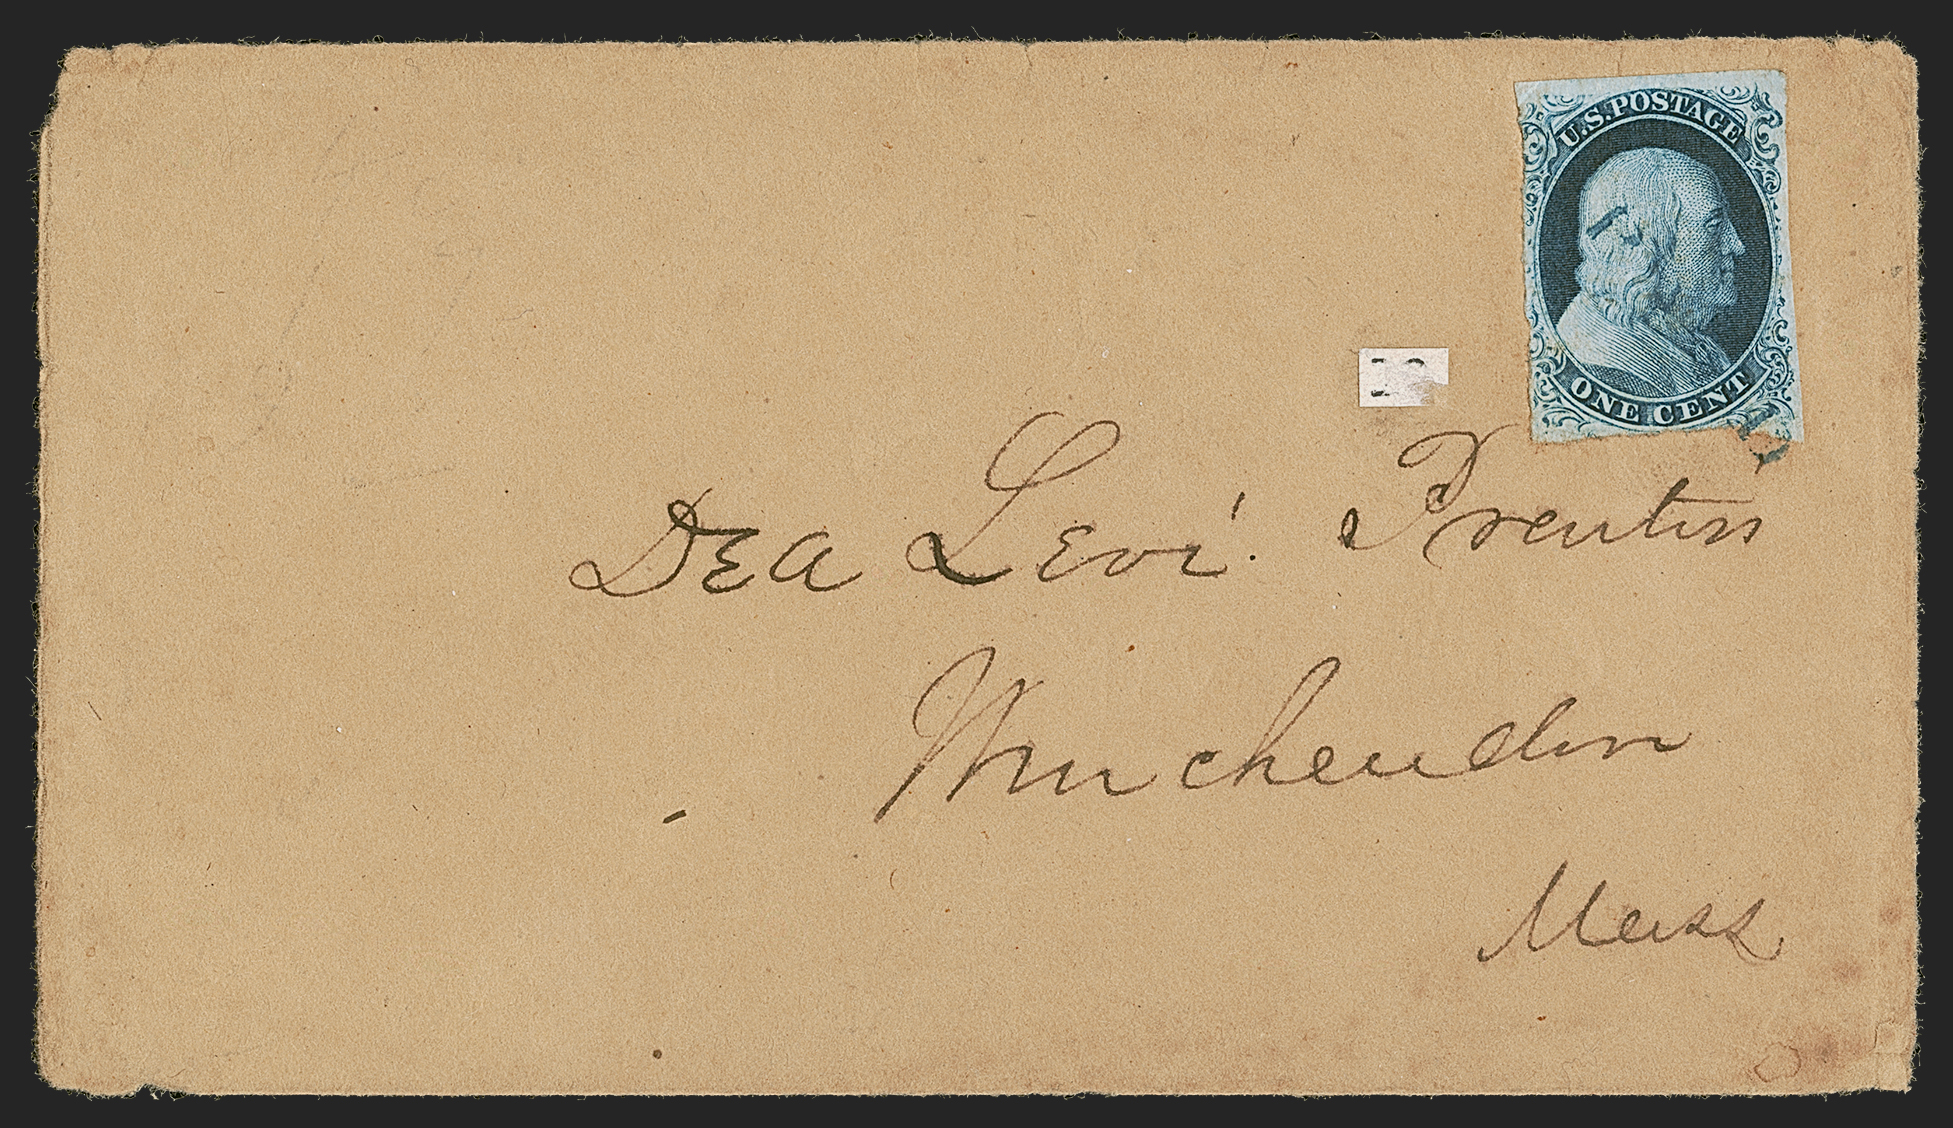 U.S. POSTAGE
ONE CENT
Dea Levi Prentiss
Winchendon
Mass